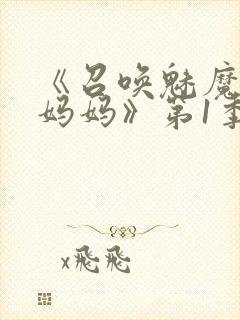 《召唤魅魔
妈妈》第1季
x飛飛